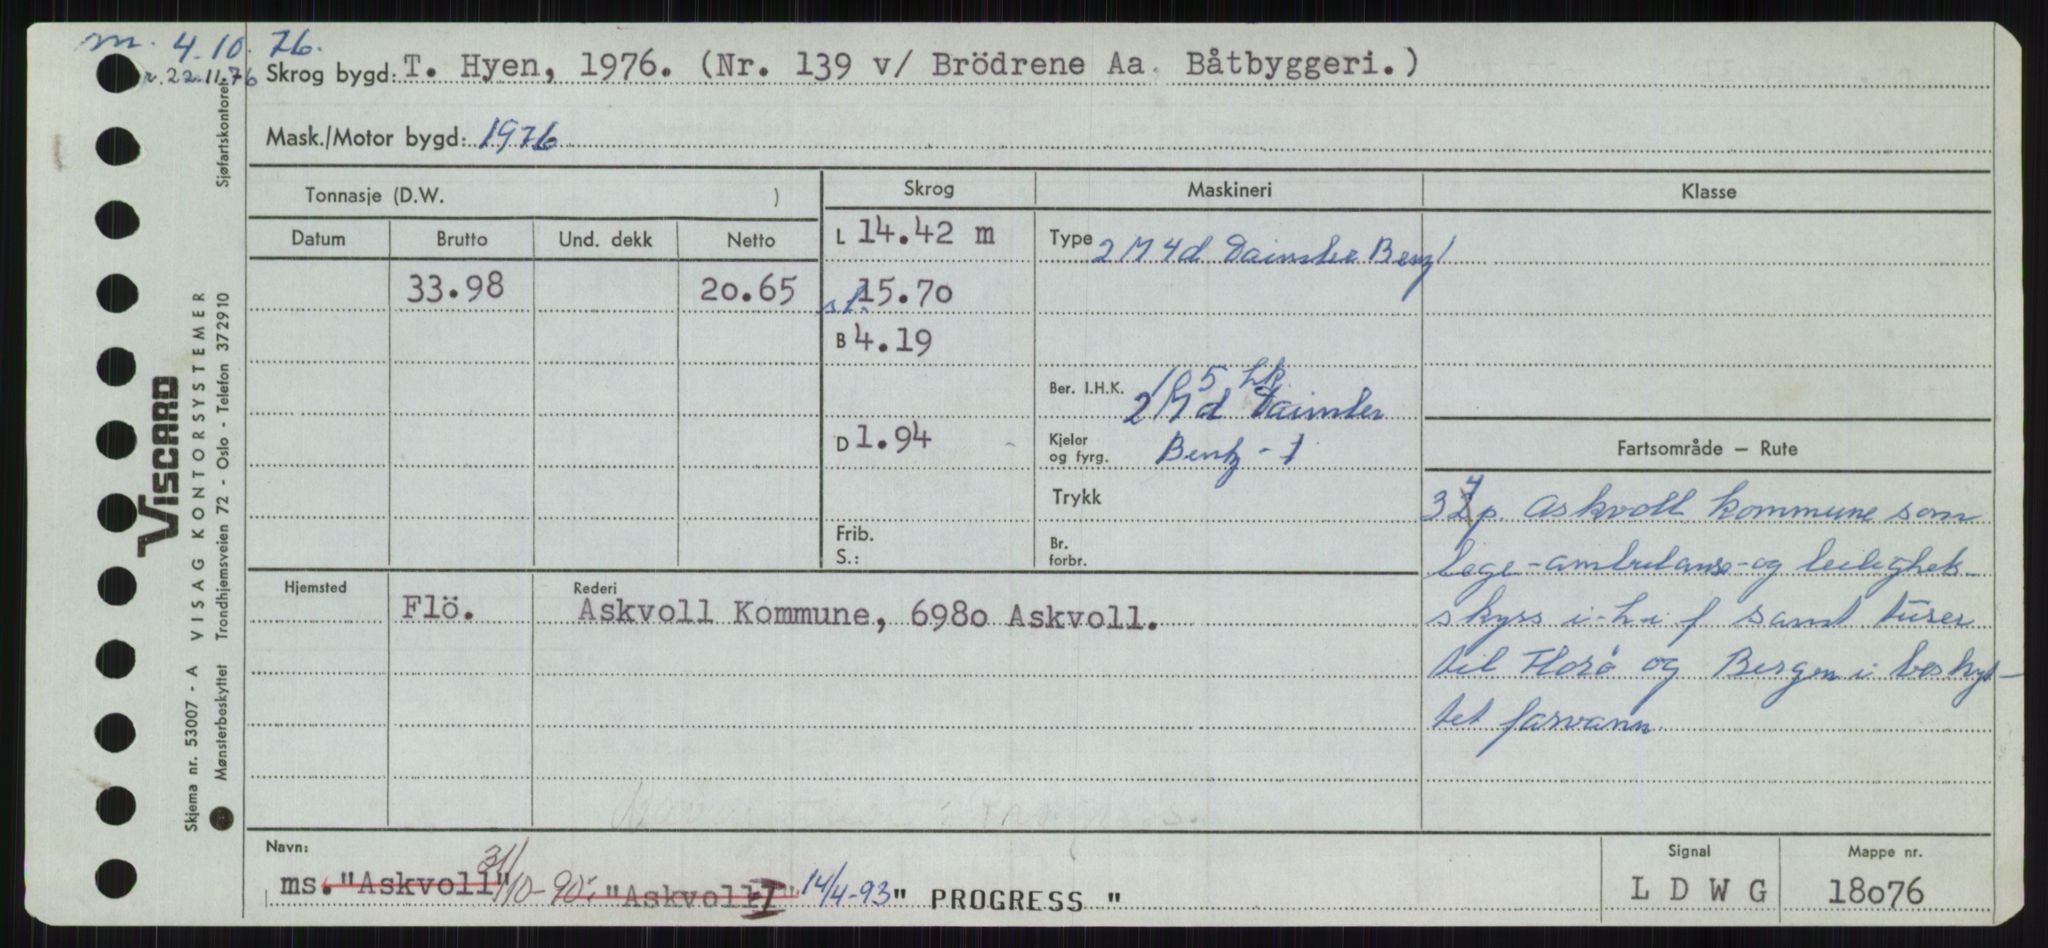 m. 4.10.76.
r.22.11.76
Skrog bygd: T. Hyen, 1976. (Nr. 139 v/ Brödrene Aa Båtbyggeri.)
Sjøfartskontoret
Mask./Motor bygd: 1976
Tonnasje (D.W. )
Skrog
Maskineri
Klasse
Datum
Brutto
Und. dekk
Netto
33.98
20.65
L 14.42 m
sl. 15.70
B 4.19
D 1.94
Frib.
S.:
Type 2 M 4d Daimler Benz 1
Ber. I.H.K. 195 hk.
2 M d Daimler
Kjeler
og fyrg. Benz - 1
Trykk
Br.
forbr.
Fartsområde – Rute
4
32 p. Askvoll kommune som
lege-ambulanse-og leilighets-
skyss i-h-i f samt turer
til Florø og Bergen i beskyt-
tet farvann.
Hjemsted
Flö.
Rederi
Askvoll Kommune, 6980 Askvoll.
Navn:
ms. "Askvoll" 31/10-90: "Askvoll I" 14/4-93 " PROGRESS "
Signal
L D W G
Mappe nr.
18076
VISCARD
VISAG KONTORSYSTEMER
Trondhjemsveien 72 - Oslo - Telefon 372910
Skjema nr. 53007 - A
Mønsterbeskyttet